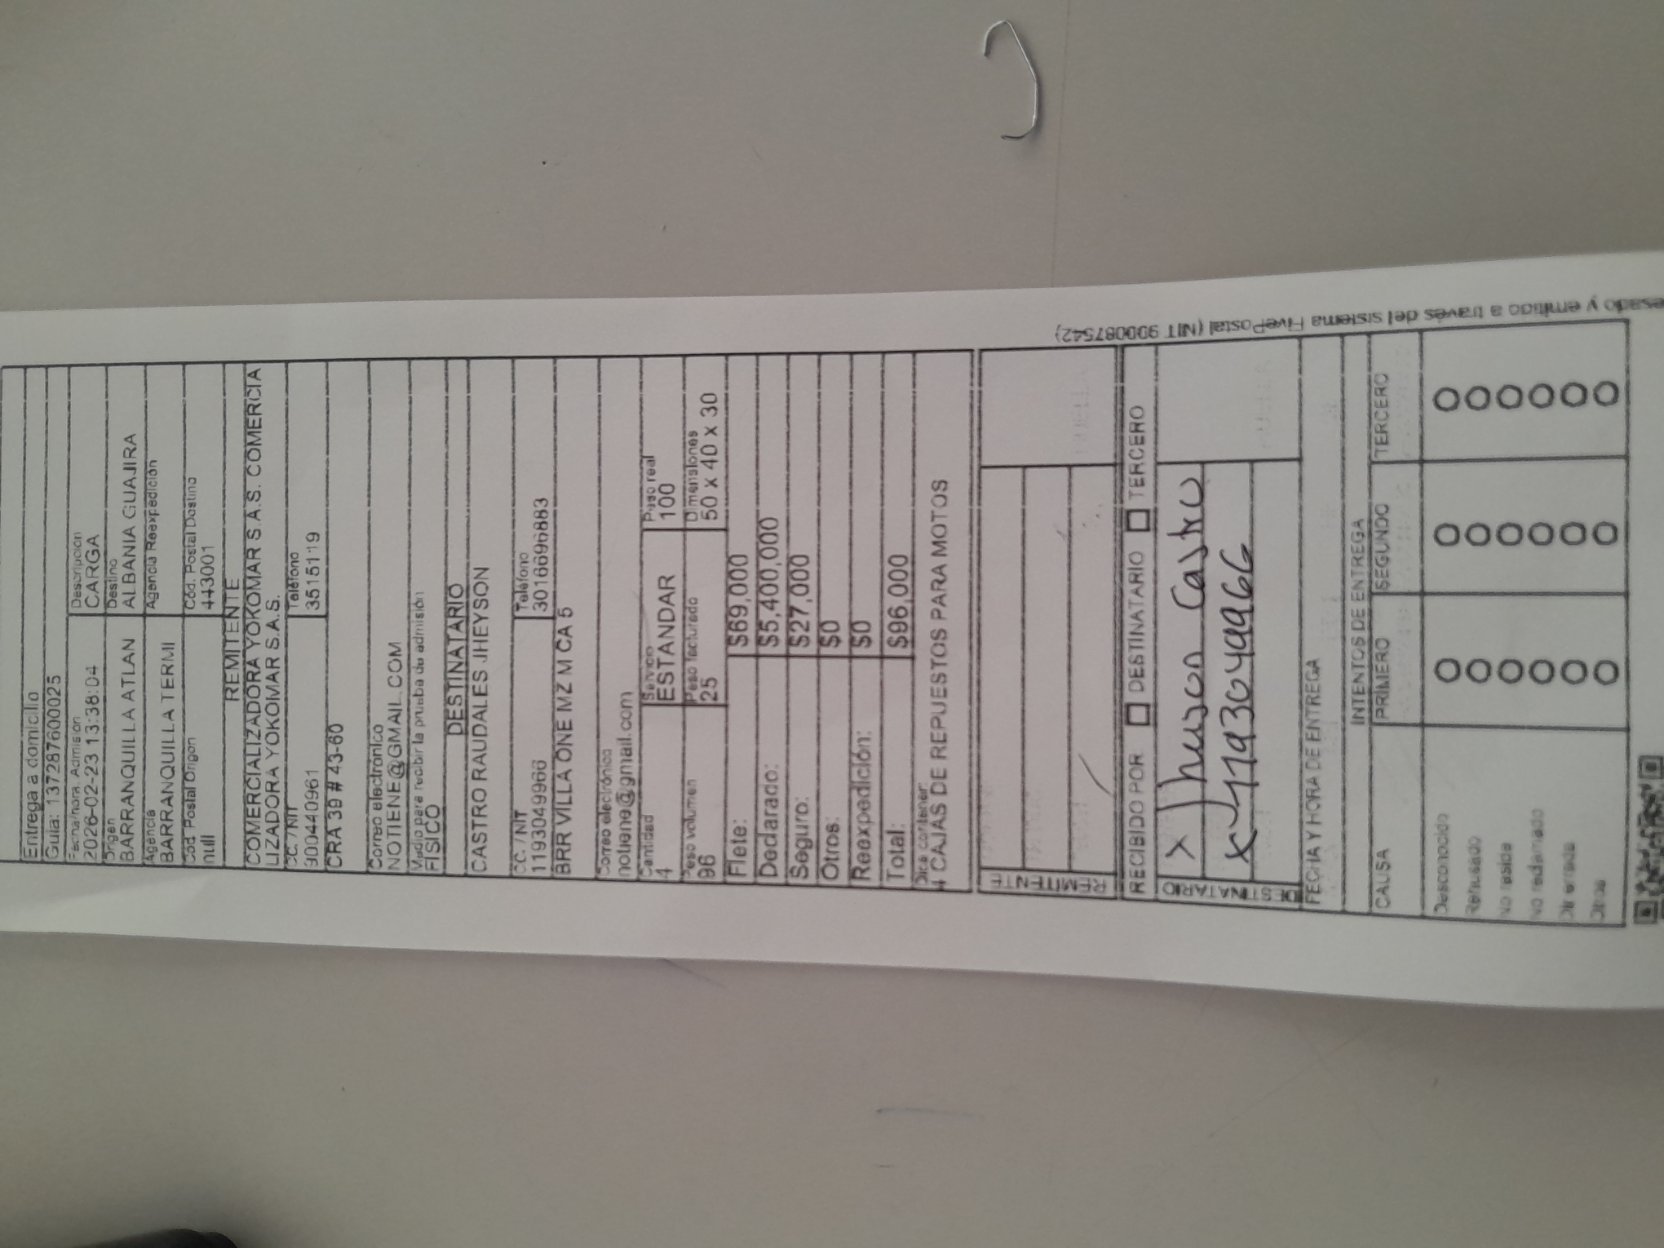 Entrega a domicilio
Guía: 137287600025
Fecha/hora Admisión
2026-02-23 13:38:04
Descripción
CARGA
Origen
BARRANQUILLA ATLAN
Destino
ALBANIA GUAJIRA
Agencia
BARRANQUILLA TERMI
Agencia Reexpedición
Cód. Postal Origen
null
Cód. Postal Destino
443001
REMITENTE
COMERCIALIZADORA YOKOMAR S.A.S. COMERCIA
LIZADORA YOKOMAR S.A.S.
CC. / NIT
900440961
Teléfono
3515119
CRA 39 # 43-60
Correo electrónico
NOTIENE@GMAIL.COM
Medio para recibir la prueba de admisión
FISICO
DESTINATARIO
CASTRO RAUDALES JHEYSON
CC. / NIT
1193049966
Teléfono
3016696883
BRR VILLA ONE MZ M CA 5
Correo electrónico
notiene@gmail.com
Cantidad
4
Servicio
ESTANDAR
Peso real
100
Peso volumen
96
Peso facturado
25
Dimensiones
50 x 40 x 30
Flete: $69,000
Declarado: $5,400,000
Seguro: $27,000
Otros: $0
Reexpedición: $0
Total: $96,000
Dice contener:
4 CAJAS DE REPUESTOS PARA MOTOS
REMITENTE
RECIBIDO POR DESTINATARIO TERCERO
DESTINATARIO
X Jheison Castro
X 1193049966
FECHA Y HORA DE ENTREGA
INTENTOS DE ENTREGA
CAUSA PRIMERO SEGUNDO TERCERO
Desconocido
Rehusado
No reside
No reclamado
Dir errada
Otros
esado y emitido a través del sistema FivePostal (NIT 900087542)